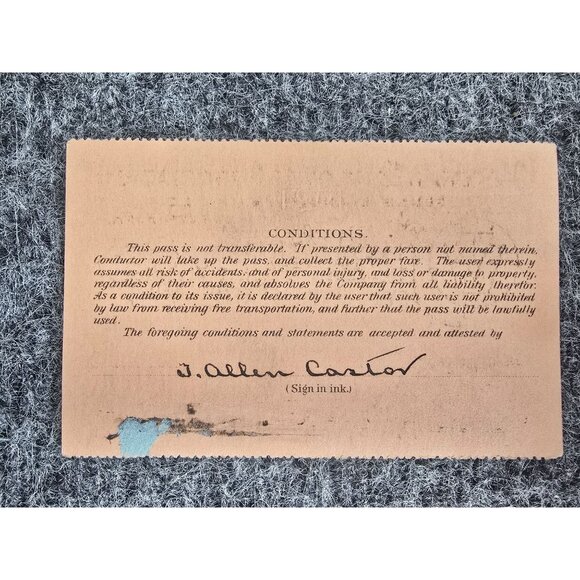 CONDITIONS.
This pass is not transferable. If presented by a person not named therein,
Conductor will take up the pass, and collect the proper fare. The user expressly
assumes all risk of accidents, and of personal injury, and loss or damage to property,
regardless of their causes, and absolves the Company from all liability therefor.
As a condition to its issue, it is declared by the user that such user is not prohibited
by law from receiving free transportation, and further that the pass will be lawfully
used.
The foregoing conditions and statements are accepted and attested by
J. Allen Castor
(Sign in ink.)